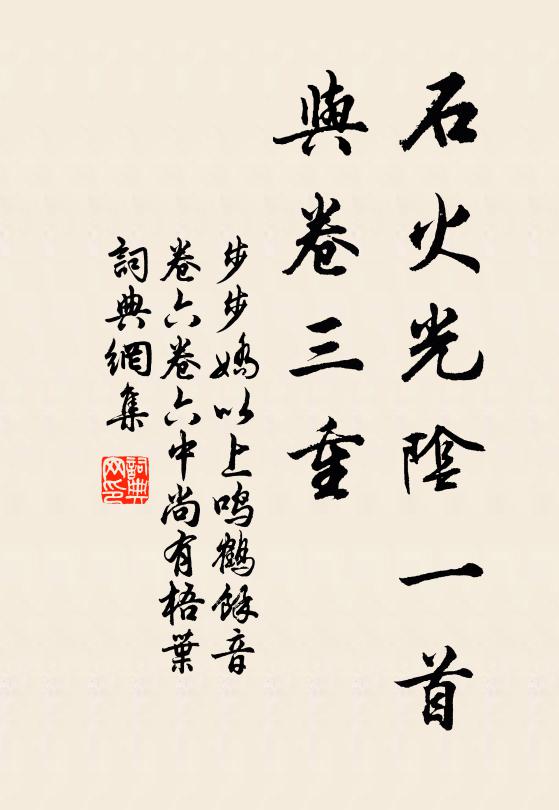 石火光陰一首
與卷三重
步步嬌以上鳴鶴餘音
卷六卷六中尚有梧葉
詞典網集
詞典网印